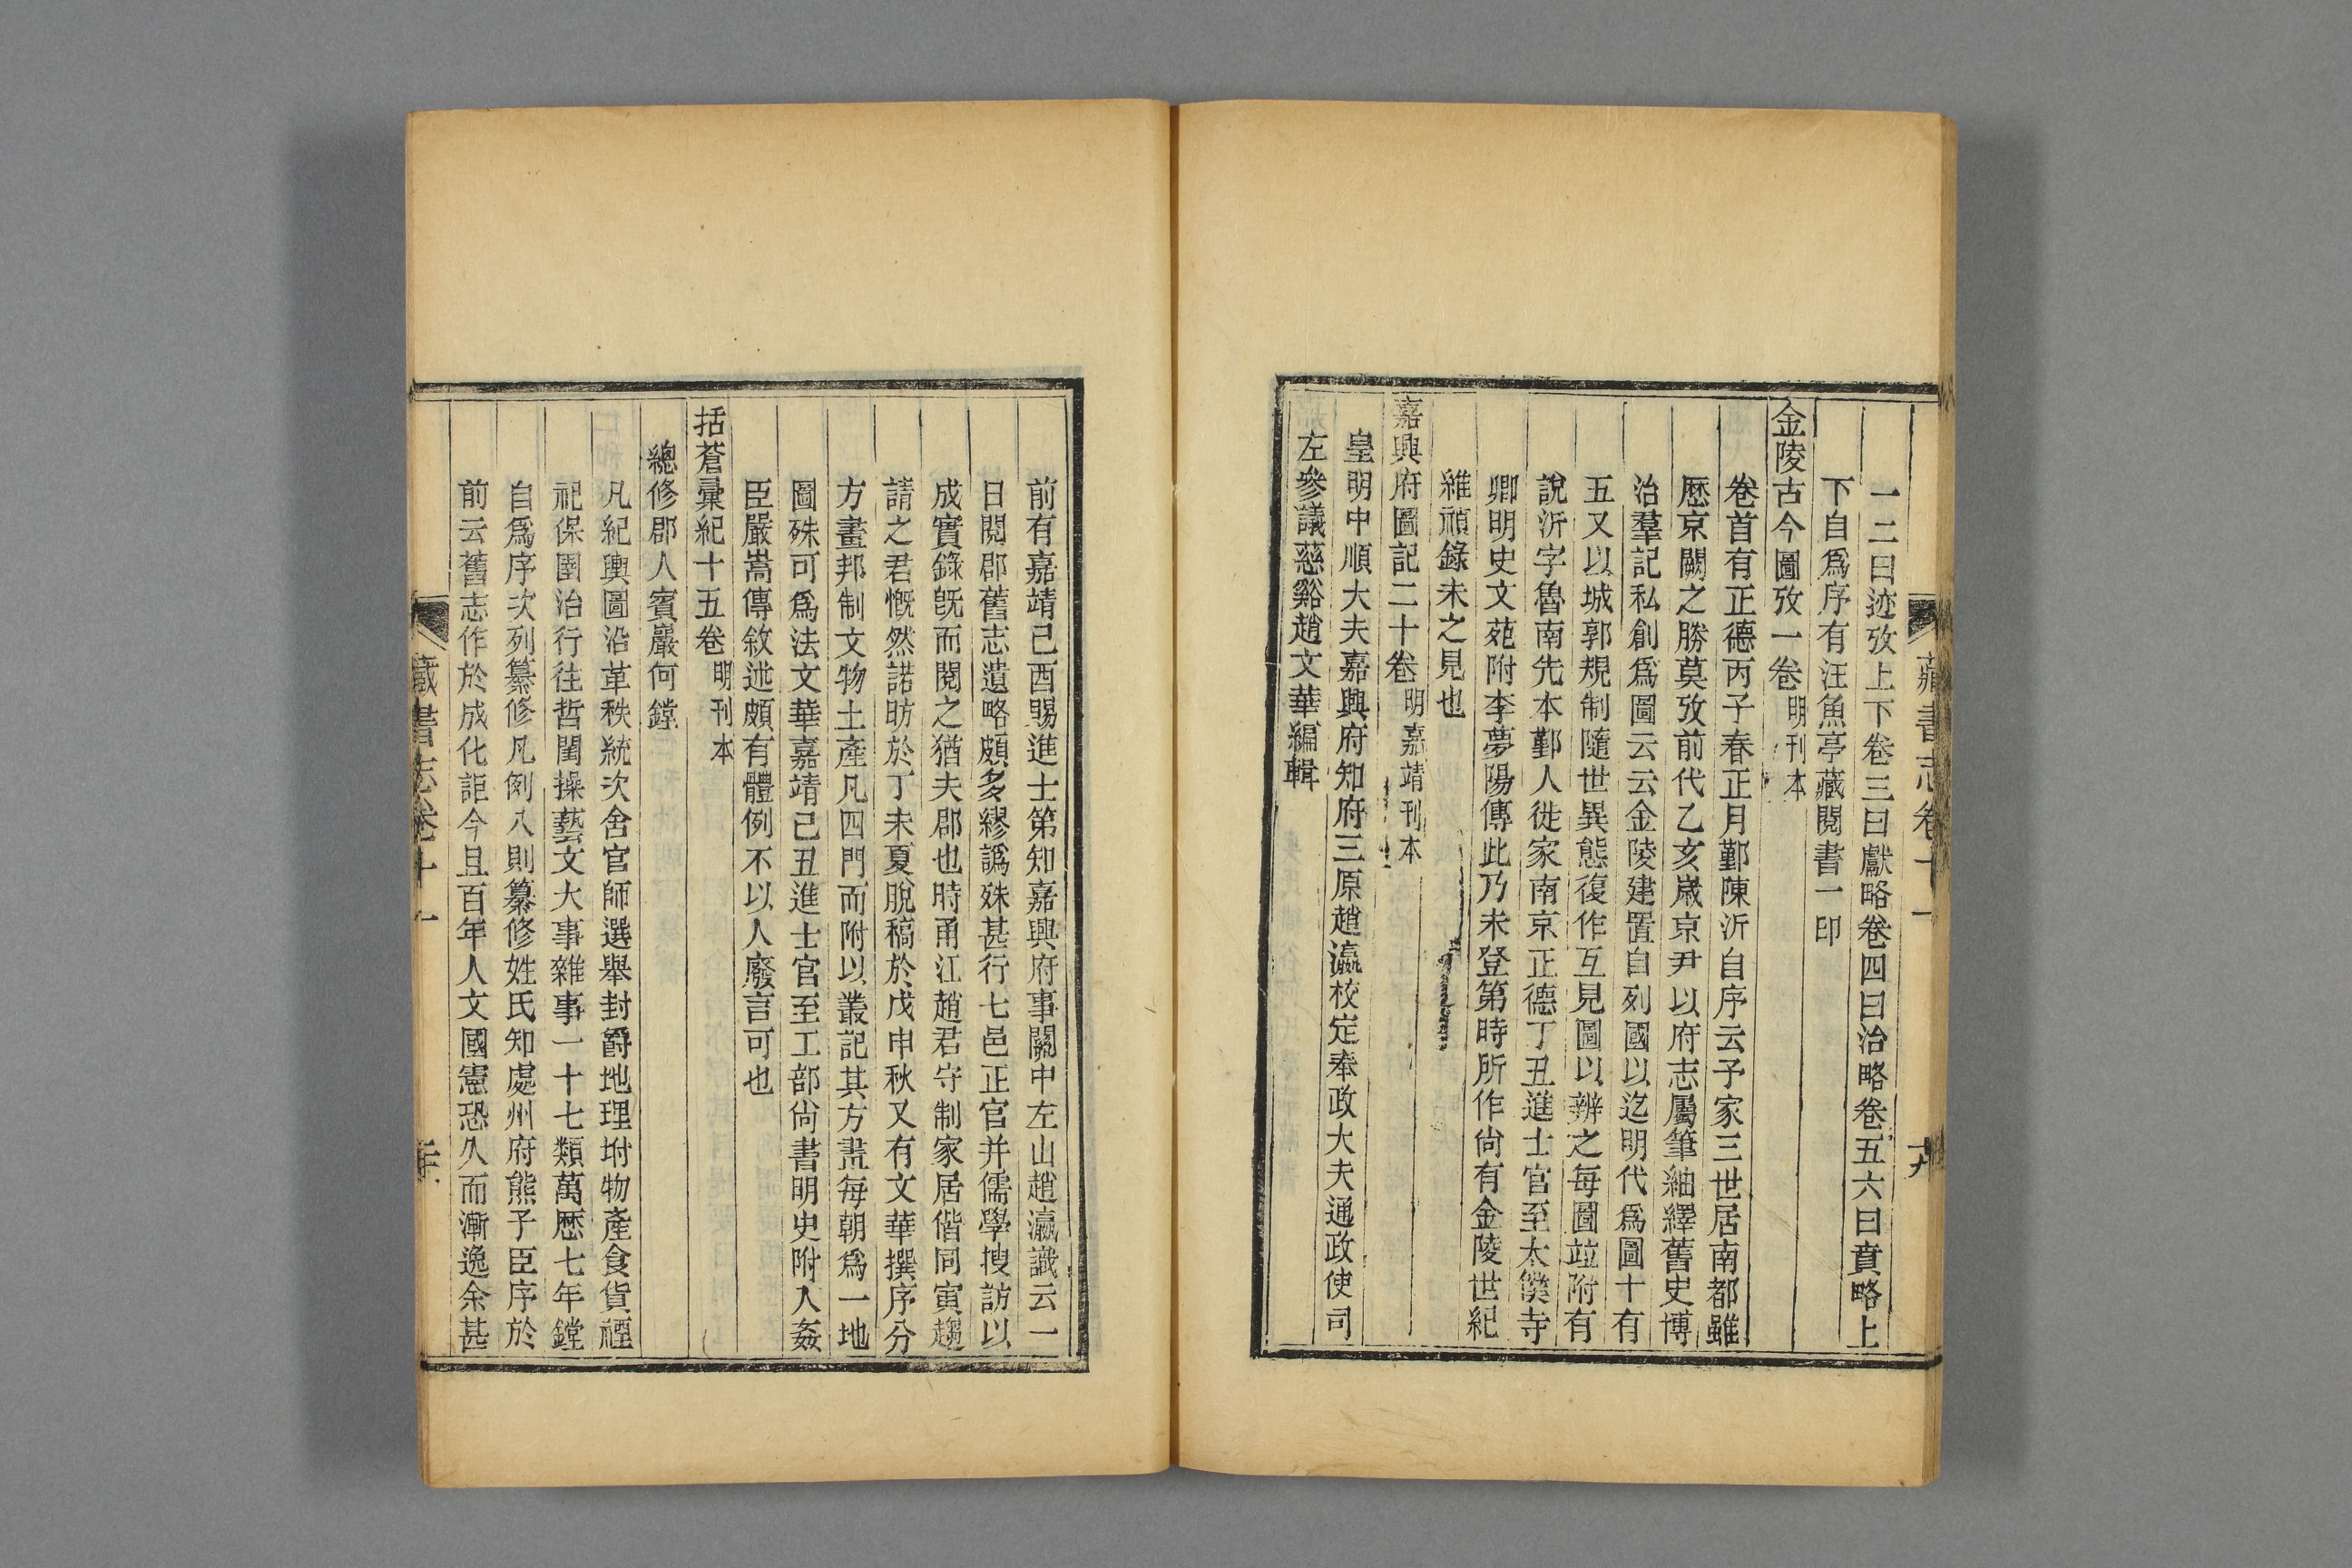 藏書志卷十一
十九
一二曰迹攷上下卷三曰獻略卷四曰治略卷五六曰賁略上
下自爲序有汪魚亭藏閱書一印
金陵古今圖攷一卷明刊本
卷首有正德丙子春正月鄞陳沂自序云予家三世居南都雖
歷京闕之勝莫攷前代乙亥歲京尹以府志屬筆紬繹舊史博
治羣記私創爲圖云云金陵建置自列國以迄明代爲圖十有
五又以城郭規制隨世異態復作互見圖以辨之每圖竝附有
說沂字魯南先本鄞人徙家南京正德丁丑進士官至太僕寺
卿明史文苑附李夢陽傳此乃未登第時所作尙有金陵世紀
維禎錄未之見也
嘉興府圖記二十卷明嘉靖刊本
皇明中順大夫嘉興府知府三原趙瀛校定奉政大夫通政使司
左參議慈谿趙文華編輯
前有嘉靖己酉賜進士第知嘉興府事關中左山趙瀛識云一
日閱郡舊志遺略頗多繆譌殊甚行七邑正官并儒學搜訪以
成實錄旣而閱之猶夫郡也時甬江趙君守制家居偕同寅趨
請之君慨然諾昉於丁未夏脫稿於戊申秋又有文華撰序分
方畫邦制文物土產凡四門而附以叢記其方畫每朝爲一地
圖殊可爲法文華嘉靖己丑進士官至工部尙書明史附入姦
臣嚴嵩傳敘述頗有體例不以人廢言可也
括蒼彙紀十五卷明刊本
總修郡人賓巖何鏜
凡紀輿圖沿革秩統次舍官師選舉封爵地理坿物產食貨禋
祀保圉治行往哲閨操藝文大事雜事一十七類萬歷七年鏜
自爲序次列纂修凡例八則纂修姓氏知處州府熊子臣序於
前云舊志作於成化詎今且百年人文國憲恐久而漸逸余甚
藏書志卷十一
二十